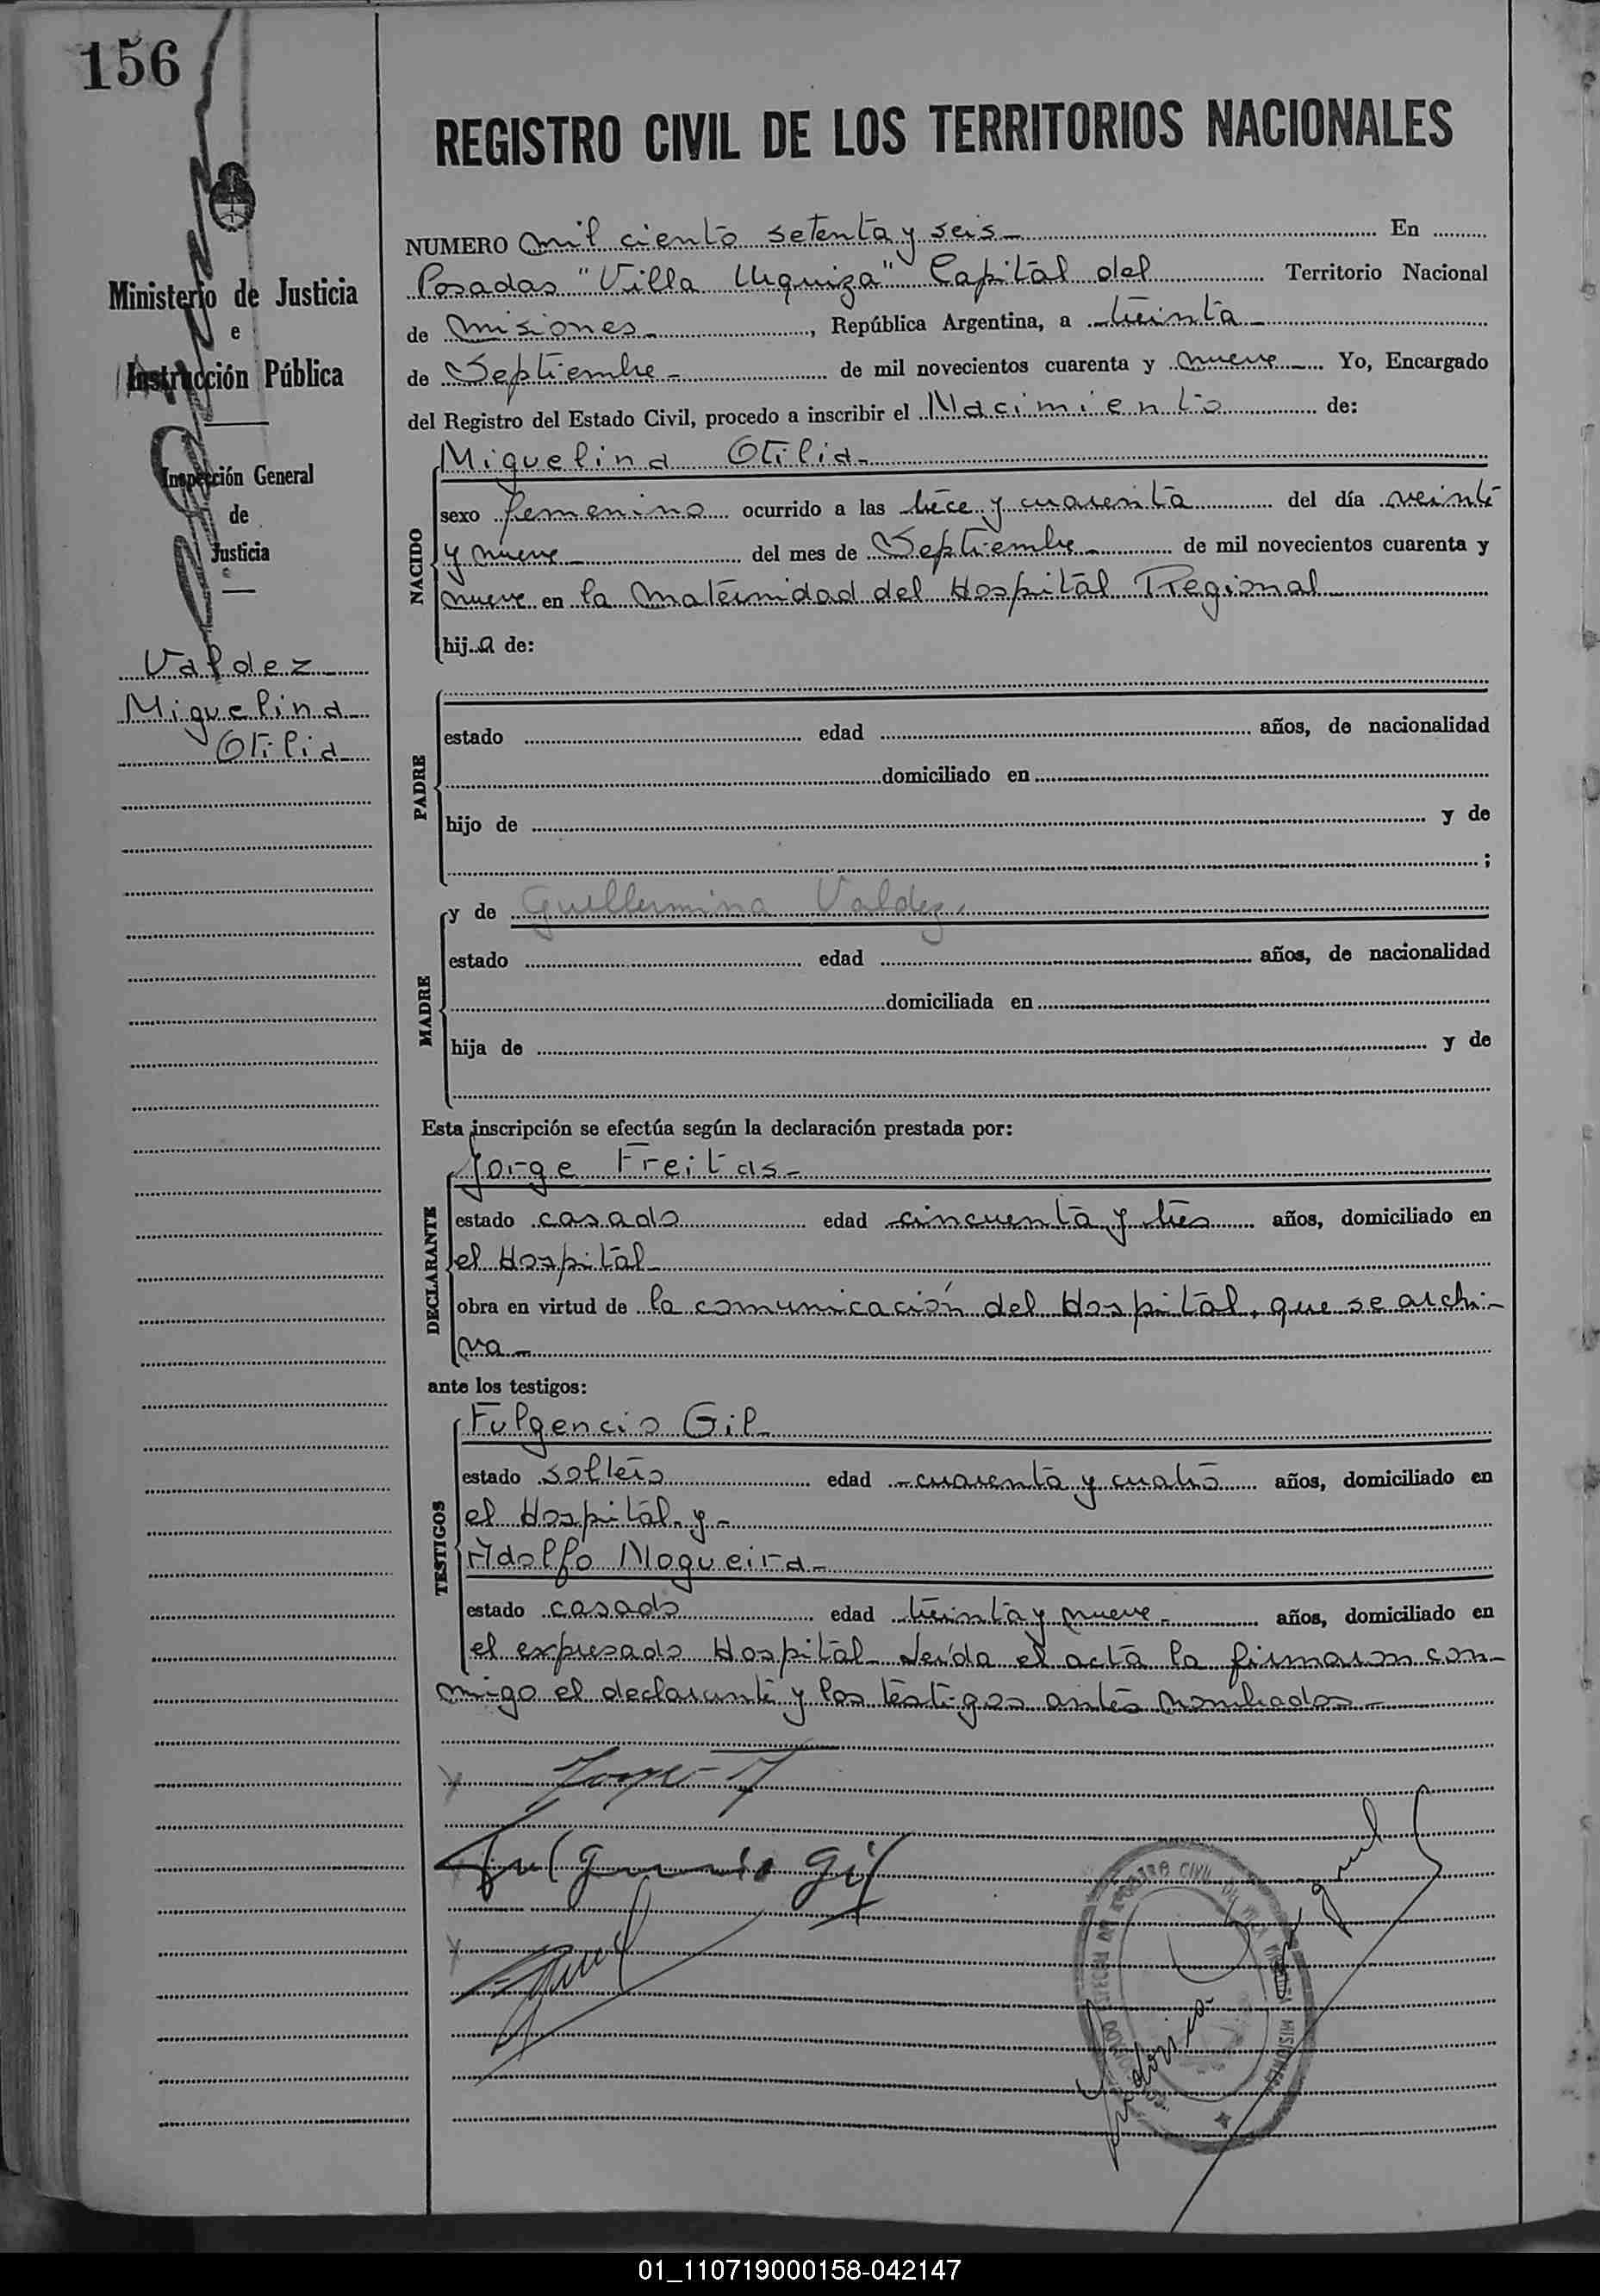 156
REGISTRO CIVIL DE LOS TERRITORIOS NACIONALES
Ministerio de Justicia
e
Instrucción Pública
Inspección General
de
Justicia
Valdez
Miguelina
Otilia
NUMERO mil ciento setenta y seis En
Posadas "Villa Urquiza" Capital del Territorio Nacional
de Misiones, República Argentina, a treinta
de Septiembre de mil novecientos cuarenta y nueve Yo, Encargado
del Registro del Estado Civil, procedo a inscribir el Nacimiento de:
NACIDO
Miguelina Otilia
sexo femenino ocurrido a las trece y cuarenta del día veinte
y nueve del mes de Septiembre de mil novecientos cuarenta y
nueve en la Maternidad del Hospital Regional
hija de:
PADRE
estado edad años, de nacionalidad
domiciliado en
hijo de y de
;
MADRE
y de Guillermina Valdez.
estado edad años, de nacionalidad
domiciliada en
hija de y de
Esta inscripción se efectúa según la declaración prestada por:
DECLARANTE
Jorge Freitas
estado casado edad cincuenta y tres años, domiciliado en
el Hospital
obra en virtud de la comunicación del Hospital, que se archi-
va
ante los testigos:
TESTIGOS
Fulgencio Gil
estado soltero edad cuarenta y cuatro años, domiciliado en
el Hospital y
Adolfo Nogueira
estado casado edad treinta y nueve años, domiciliado en
el expresado Hospital Leída el acta la firmaron con-
migo el declarante y los testigos antes nombrados
Jorge F
Fulgencio Gil
REGISTRO CIVIL
MISIONES
01_110719000158-042147